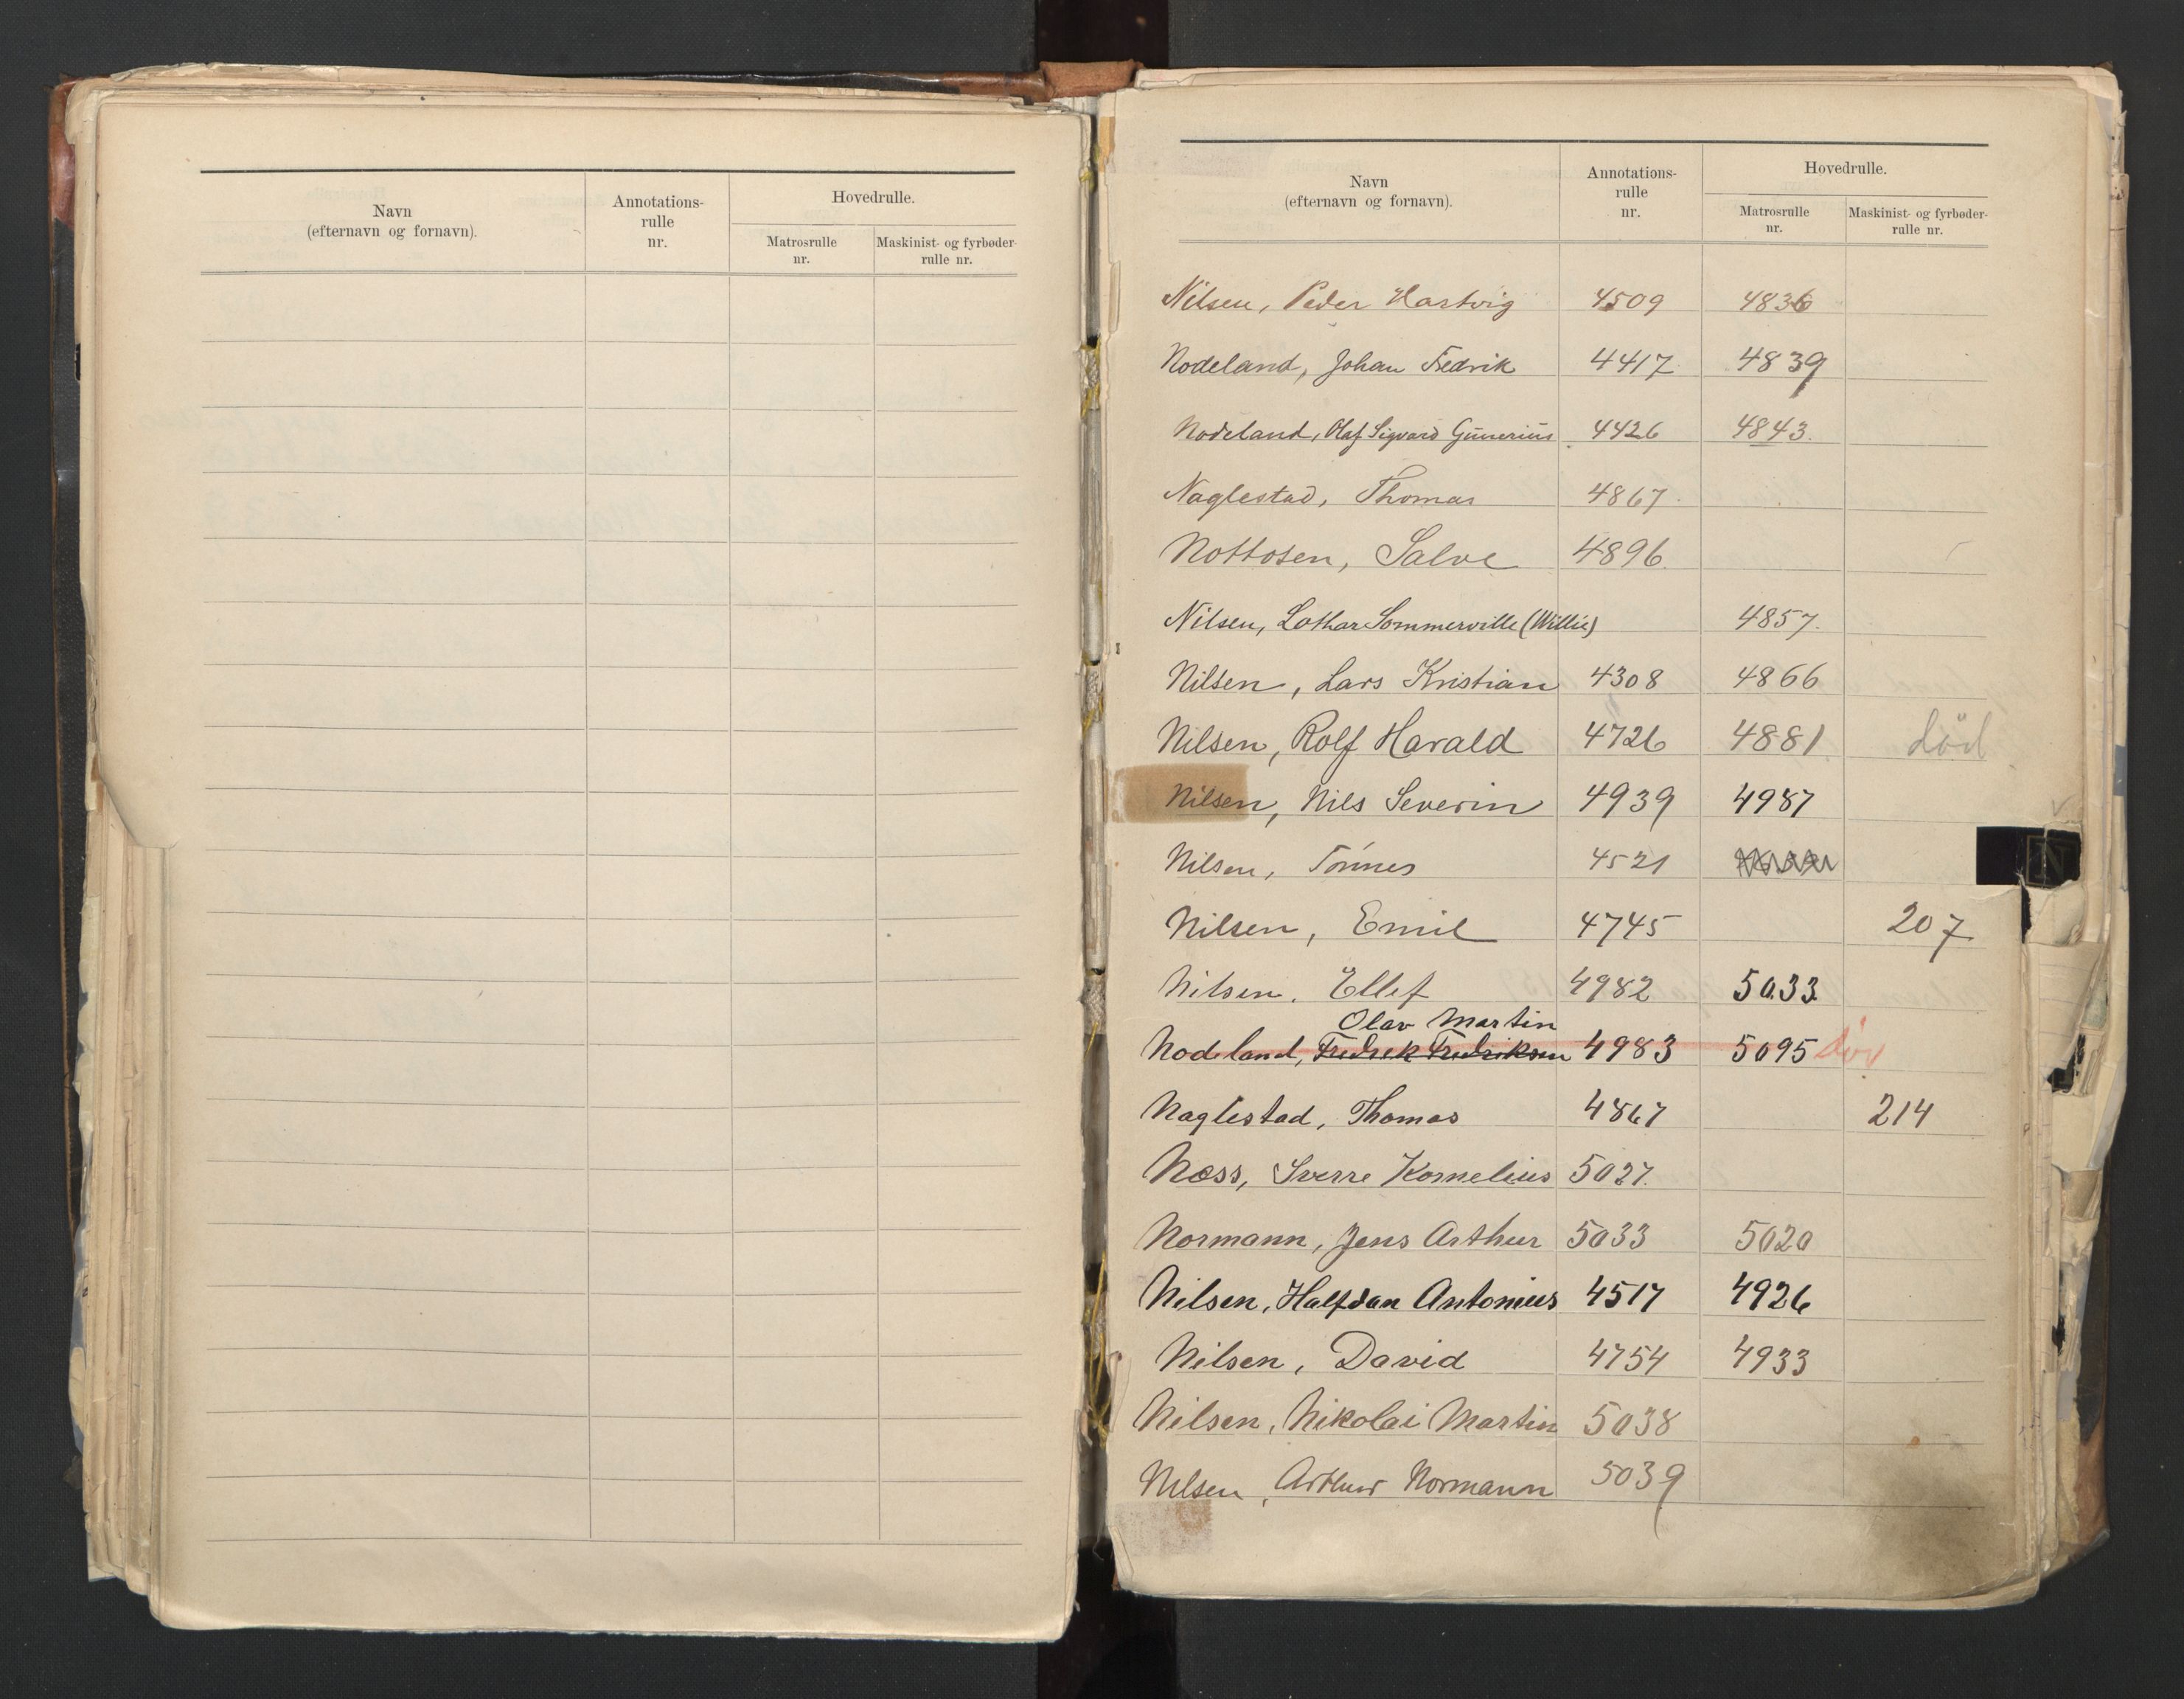 Navn
(efternavn og fornavn).
Annotations-
rulle
nr.
Hovedrulle.
Matrosrulle
nr.
Maskinist- og fyrbøder-
rulle nr.
Navn
(efternavn og fornavn).
Annotations-
rulle
nr.
Hovedrulle.
Matrosrulle
nr.
Maskinist- og fyrbøder-
rulle nr.
Nilsen, Peder Hartvig 4509 4836
Nodeland, Johan Fedrik 4417 4839
Nodeland, Olaf Sigvard Gunerius 4426 4843.
Naglestad, Thomas 4867.
Nottosen, Salve 4896.
Nilsen, Lothar Sommerville (Willie) 4857.
Nilsen, Lars Kristian 4308 4866
Nilsen, Rolf Harald 4726 4881 död
Nilsen, Nils Severin 4939 4987
Nilsen, Tönnes 4521
Nilsen, Emil 4745 207
Nilsen, Ellef 4982 5033
Olav Martin
Nodeland, Fredrek Fredriksen 4983 5095 död
Naglestad, Thomas 4867 214
Næss, Sverre Kornelius 5027.
Normann, Jens Arthur 5033 5020
Nilsen, Halfdan Antonius 4517 4926
Nilsen, David 4754 4933
Nilsen, Nikolai Martin 5038
Nilsen, Arthur Normann 5039